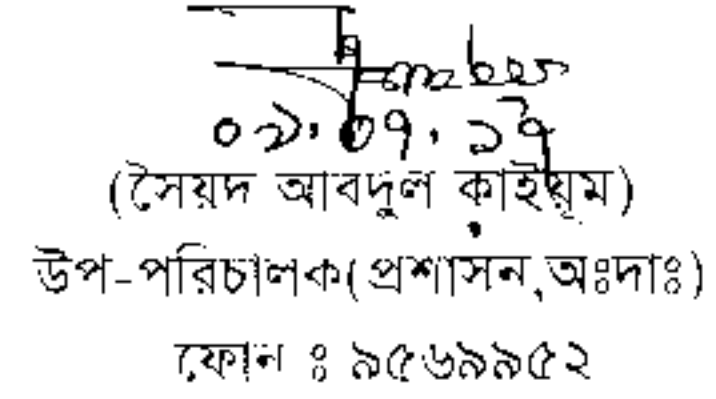 ০৯.০৭.১৭
(সৈয়দ আবদুল কাইয়ূম)
উপ-পরিচালক(প্রশাসন,অঃদাঃ)
ফোন ঃ ৯৫৬৯৯৫২